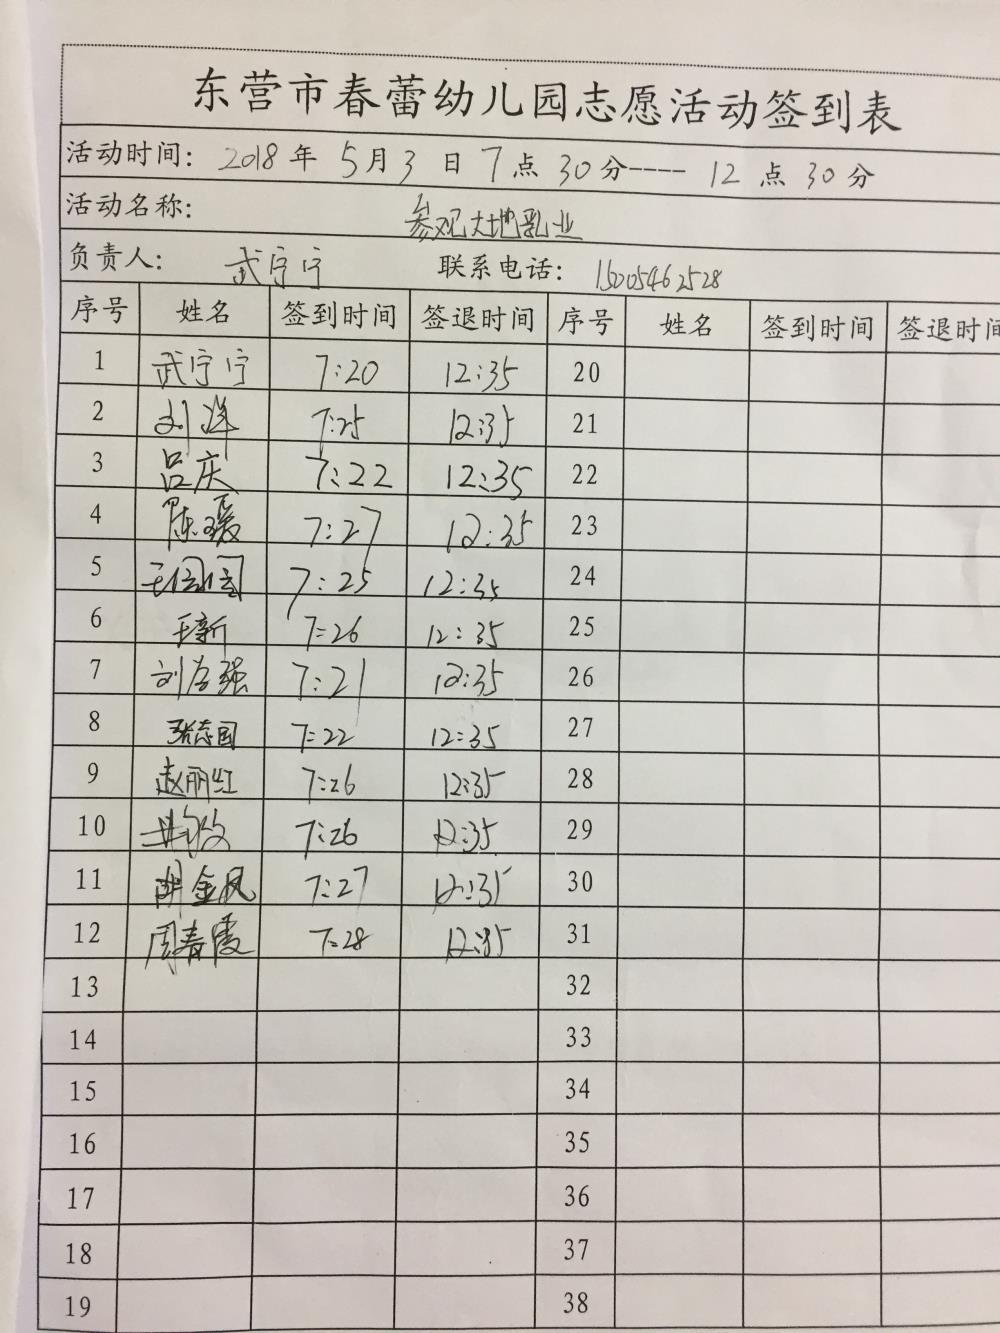 东营市春蕾幼儿园志愿活动签到表
活动时间: 2018 年 5 月 3 日 7 点 30 分---- 12 点 30 分
活动名称: 参观大地乳业
负责人: 武宁宁 联系电话: 15005462528
序号 姓名 签到时间 签退时间 序号 姓名 签到时间 签退时间
1 武宁宁 7:20 12:35 20
2 刘洋 7:25 12:35 21
3 吕庆 7:22 12:35 22
4 陈瑷 7:27 12:35 23
5 7:25 12:35 24
6 王新 7:26 12:35 25
7 刘存强 7:21 12:35 26
8 张志国 7:22 12:35 27
9 赵丽红 7:26 12:35 28
10 7:26 12:35 29
11 胡金凤 7:27 12:35 30
12 周春霞 7:28 12:35 31
13 32
14 33
15 34
16 35
17 36
18 37
19 38